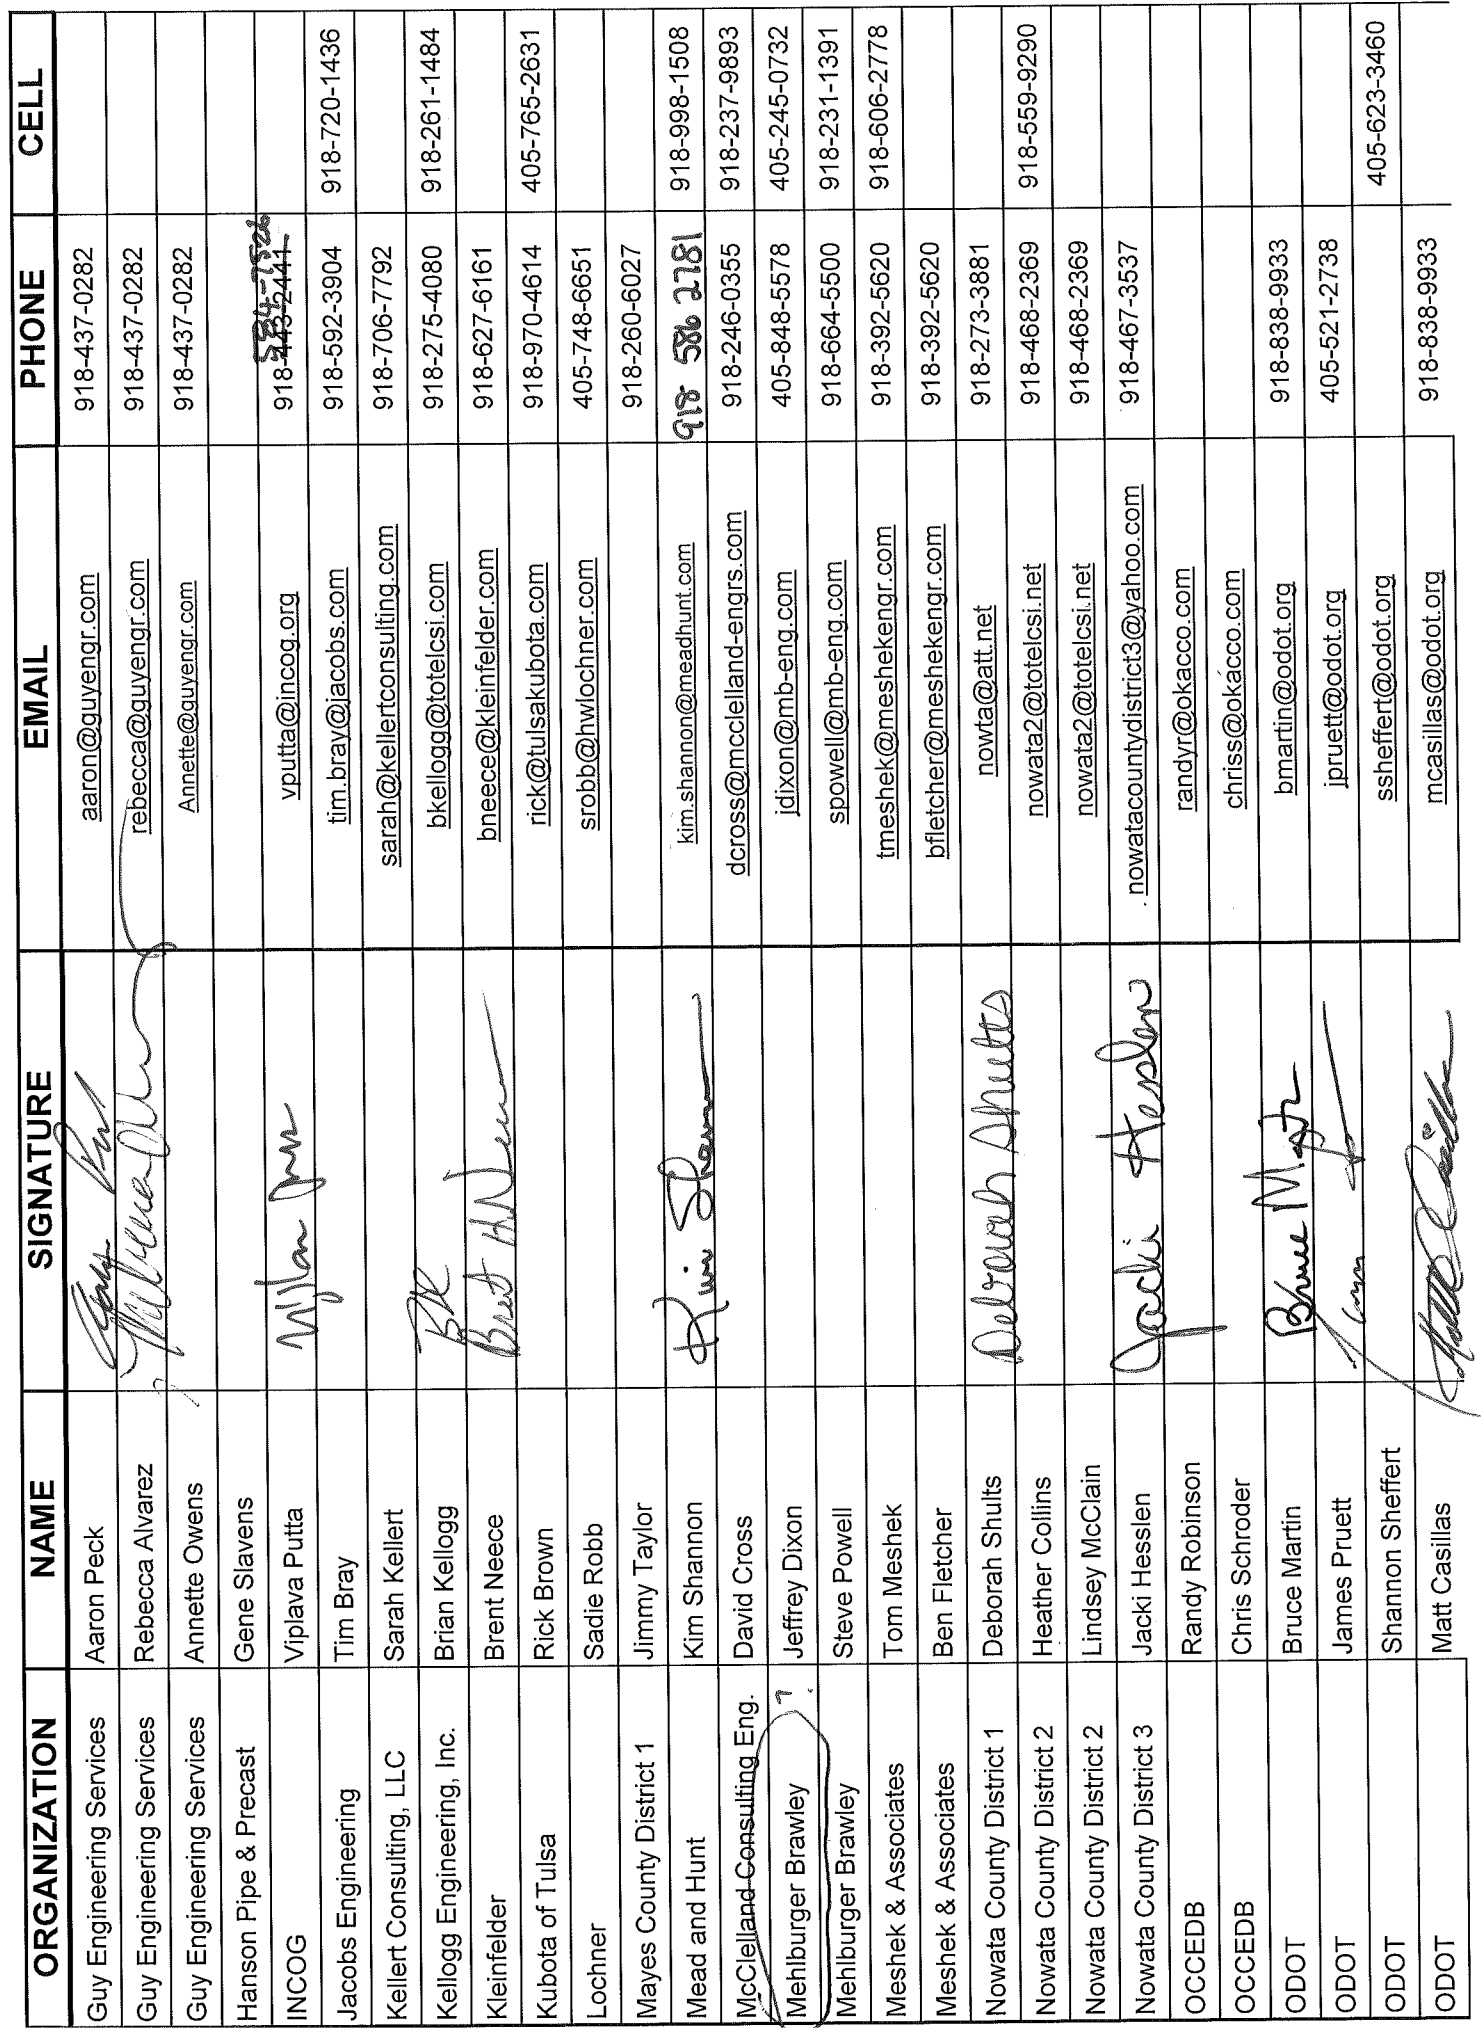 ORGANIZATION NAME SIGNATURE EMAIL PHONE CELL
Guy Engineering Services Aaron Peck aaron@guyengr.com 918-437-0282
Guy Engineering Services Rebecca Alvarez rebecca@guyengr.com 918-437-0282
Guy Engineering Services Annette Owens Annette@guyengr.com 918-437-0282
Hanson Pipe & Precast Gene Slavens
INCOG Viplava Putta vputta@incog.org 918-443-2441 584-7526
Jacobs Engineering Tim Bray tim.bray@jacobs.com 918-592-3904 918-720-1436
Kellert Consulting, LLC Sarah Kellert sarah@kellertconsulting.com 918-706-7792
Kellogg Engineering, Inc. Brian Kellogg BK bkellogg@totelcsi.com 918-275-4080 918-261-1484
Kleinfelder Brent Neece bneece@kleinfelder.com 918-627-6161
Kubota of Tulsa Rick Brown rick@tulsakubota.com 918-970-4614 405-765-2631
Lochner Sadie Robb srobb@hwlochner.com 405-748-6651
Mayes County District 1 Jimmy Taylor 918-260-6027
Mead and Hunt Kim Shannon Kim Shannon kim.shannon@meadhunt.com 918 586 2781 918-998-1508
McClelland Consulting Eng. David Cross dcross@mcclelland-engrs.com 918-246-0355 918-237-9893
Mehlburger Brawley ? Jeffrey Dixon jdixon@mb-eng.com 405-848-5578 405-245-0732
Mehlburger Brawley Steve Powell spowell@mb-eng.com 918-664-5500 918-231-1391
Meshek & Associates Tom Meshek tmeshek@meshekengr.com 918-392-5620 918-606-2778
Meshek & Associates Ben Fletcher bfletcher@meshekengr.com 918-392-5620
Nowata County District 1 Deborah Shults Deborah Shults nowta@att.net 918-273-3881
Nowata County District 2 Heather Collins nowata2@totelcsi.net 918-468-2369 918-559-9290
Nowata County District 2 Lindsey McClain nowata2@totelcsi.net 918-468-2369
Nowata County District 3 Jacki Hesslen Jacki Hesslen nowatacountydistrict3@yahoo.com 918-467-3537
OCCEDB Randy Robinson randyr@okacco.com
OCCEDB Chris Schroder chriss@okacco.com
ODOT Bruce Martin Bruce Martin bmartin@odot.org 918-838-9933
ODOT James Pruett jpruett@odot.org 405-521-2738
ODOT Shannon Sheffert ssheffert@odot.org 405-623-3460
ODOT Matt Casillas mcasillas@odot.org 918-838-9933